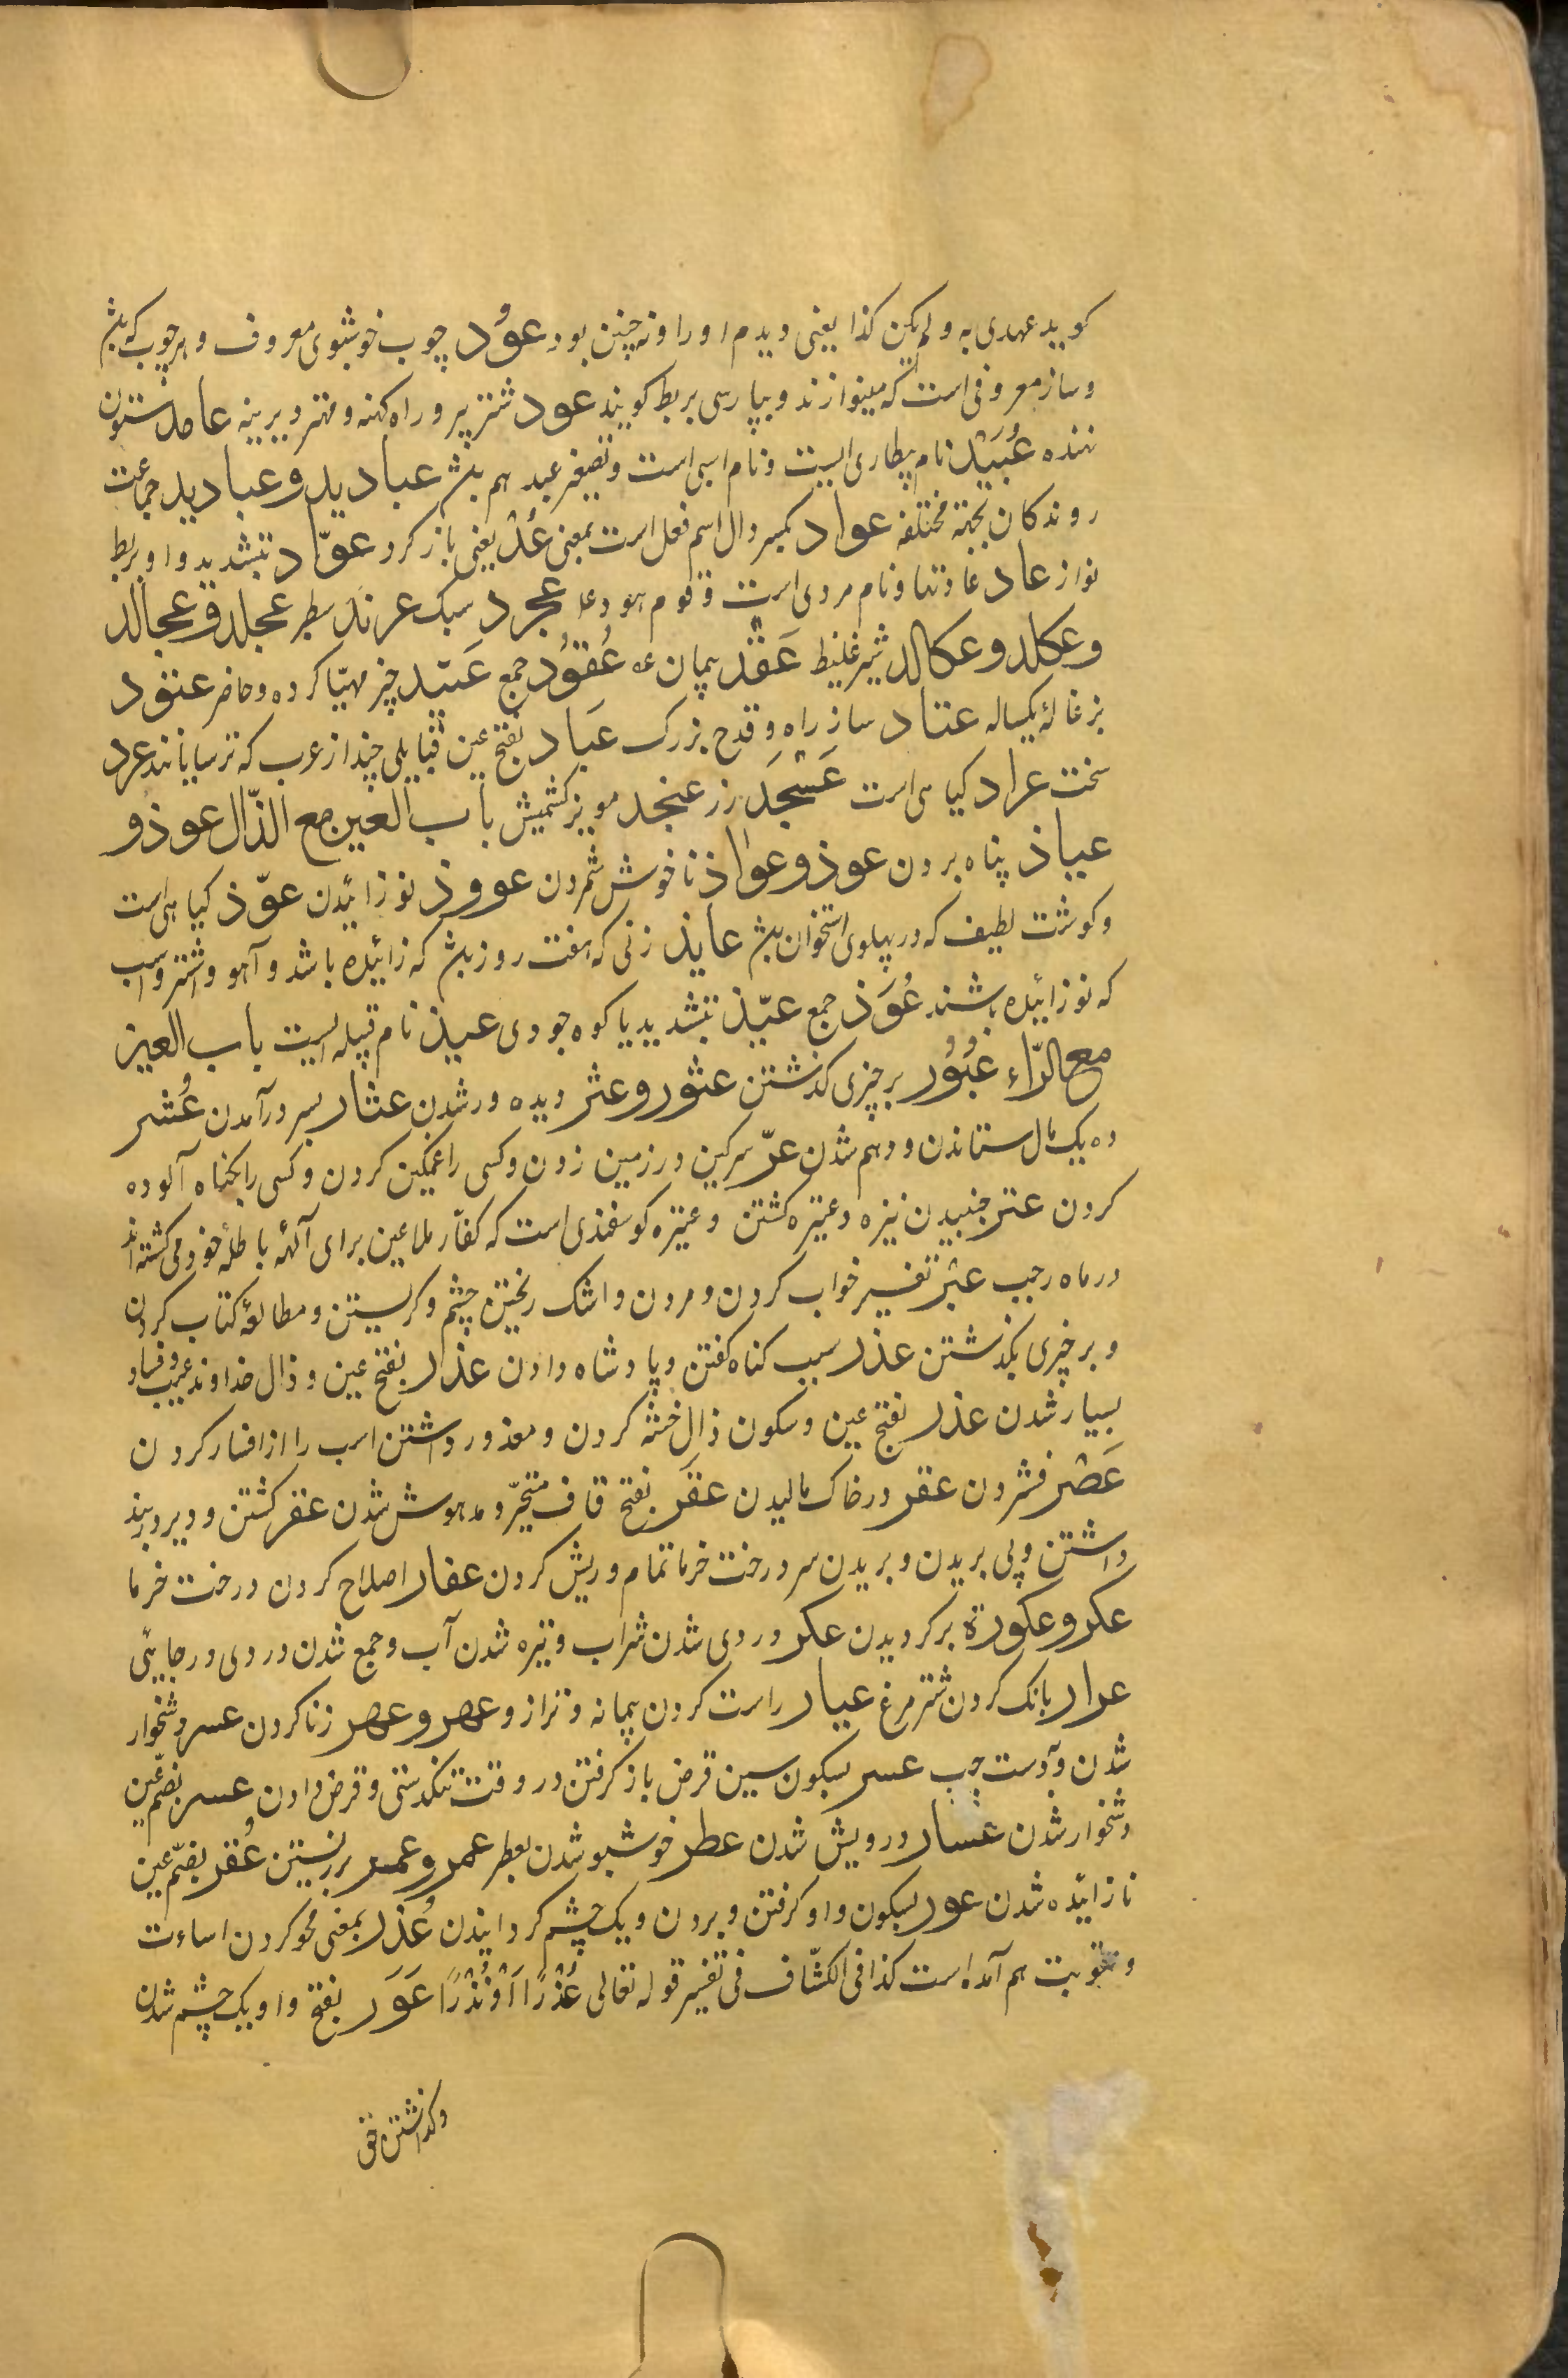 کوید عهدی به و لم یکن کذا یعنی دیدم اورا و نه چنین بود عُود چوب خوشبوی معروف و هر چوب که بشد
و ساز معروفی است که مینوازند و بپارسی بربط کویند عود شتر پیر و راه کهنه و مهتر دیرینه عامد ستون
ننده عُبَیْد نام بیطاری ایست و نام اسبی است و تصغیر عبد هم بشد عبادید و عبادید جماعت
روندکان بجهة مختلفه عواد بکسر دال اسم فعل است بمعنی عُدْ یعنی بازکرد عوّاد بتشدید واو بربط
نواز عاد عادتها و نام مردی است و قوم هود ع‍ عجرد سبک عرند سطبر عجلد و عجالد
و عکلد و عکالد شیر غلیظ عَقْد پیمان عُقوُد جمع عَتید چیز مهیّا کرده و حاضر عتود
بزغالهٔ یکساله عتاد ساز راه و قدح بزرک عَباد بفتح عین قبایلی چند از عرب که ترسایانند عرد
سخت عراد کیاهی است عَسْجَد زر عنجد مویز کشمیش باب العین مع الذّال عوذ و
عیاذ پناه بردن عوذ و عواذ ناخوش شمردن عووذ نوزائیدن عوّذ کیاهی است
و کوشت لطیف که در پهلوی استخوان بشد عایذ زنی که هفت روز بشد که زائیده باشد و آهو و اشتر و اسب
که نوزائیده باشند عُوَذ جمع عیّذ بتشدید یا کوه جودی عیذ نام قبیله ایست باب العین
مع الرّاء عُبُوُر بر چیزی کذشتن عثور و عثر دیده ور شدن عثار بسر درآمدن عُشر
ده یک مال ستاندن و دهم شدن عرّ سرکین در زمین زدن و کسی را غمکین کردن و کسی را بکناه آلوده
کردن عتر جنبیدن نیزه و عتیره کشتن و عتیره کوسفندی است که کفّار ملاعین برای آلهٔ باطلهٔ خود می کشته اند
در ماه رجب عبْر تفسیر خواب کردن و مردن و اشک ریختن چشم و کریستن و مطالعهٔ کتاب کردن
و بر چیزی بکذشتن عذر سبب کناه کفتن و پادشاه دادن عذر بفتح عین و ذال خداوند عیب و فساد
بسیار شدن عذر بفتح عین و سکون ذال ختنه کردن و معذور داشتن اسب را از افسار کردن
عَصْر فشردن عقر در خاک مالیدن عقَر بفتح قاف متحیّر و مدهوش شدن عقر کشتن و دیر در بند
داشتن و پی بریدن و بریدن سر درخت خرما تمام و ریش کردن عفار اصلاح کردن درخت خرما
عکر و عکورة برکردیدن عکر دردی شدن شراب و تیره شدن آب و جمع شدن دردی در جایی
عرار بانک کردن شترمرغ عیار راست کردن پیمانه و ترازو عهر و عهر زنا کردن عسر دشخوار
شدن و آدست چپ عسر بسکون سین قرض باز کرفتن در وقت تنکدستی و قرض دادن عسر بضمّ عین
دشخوار شدن عسار درویش شدن عطر خوشبو شدن بعطر عمر و عمر بزیستن عُقر بضمّ عین
نازائیده شدن عور بسکون واو کرفتن و بردن و یک چشم کردانیدن عُذر بمعنی محو کردن اساءت
و عقوبت هم آمده است کذا فی الکشّاف فی تفسیر قوله تعالی عُذْرًا اَوْ نُذْرًا عَوَر بفتح واو یک چشم شدن
و کذاشتن حق